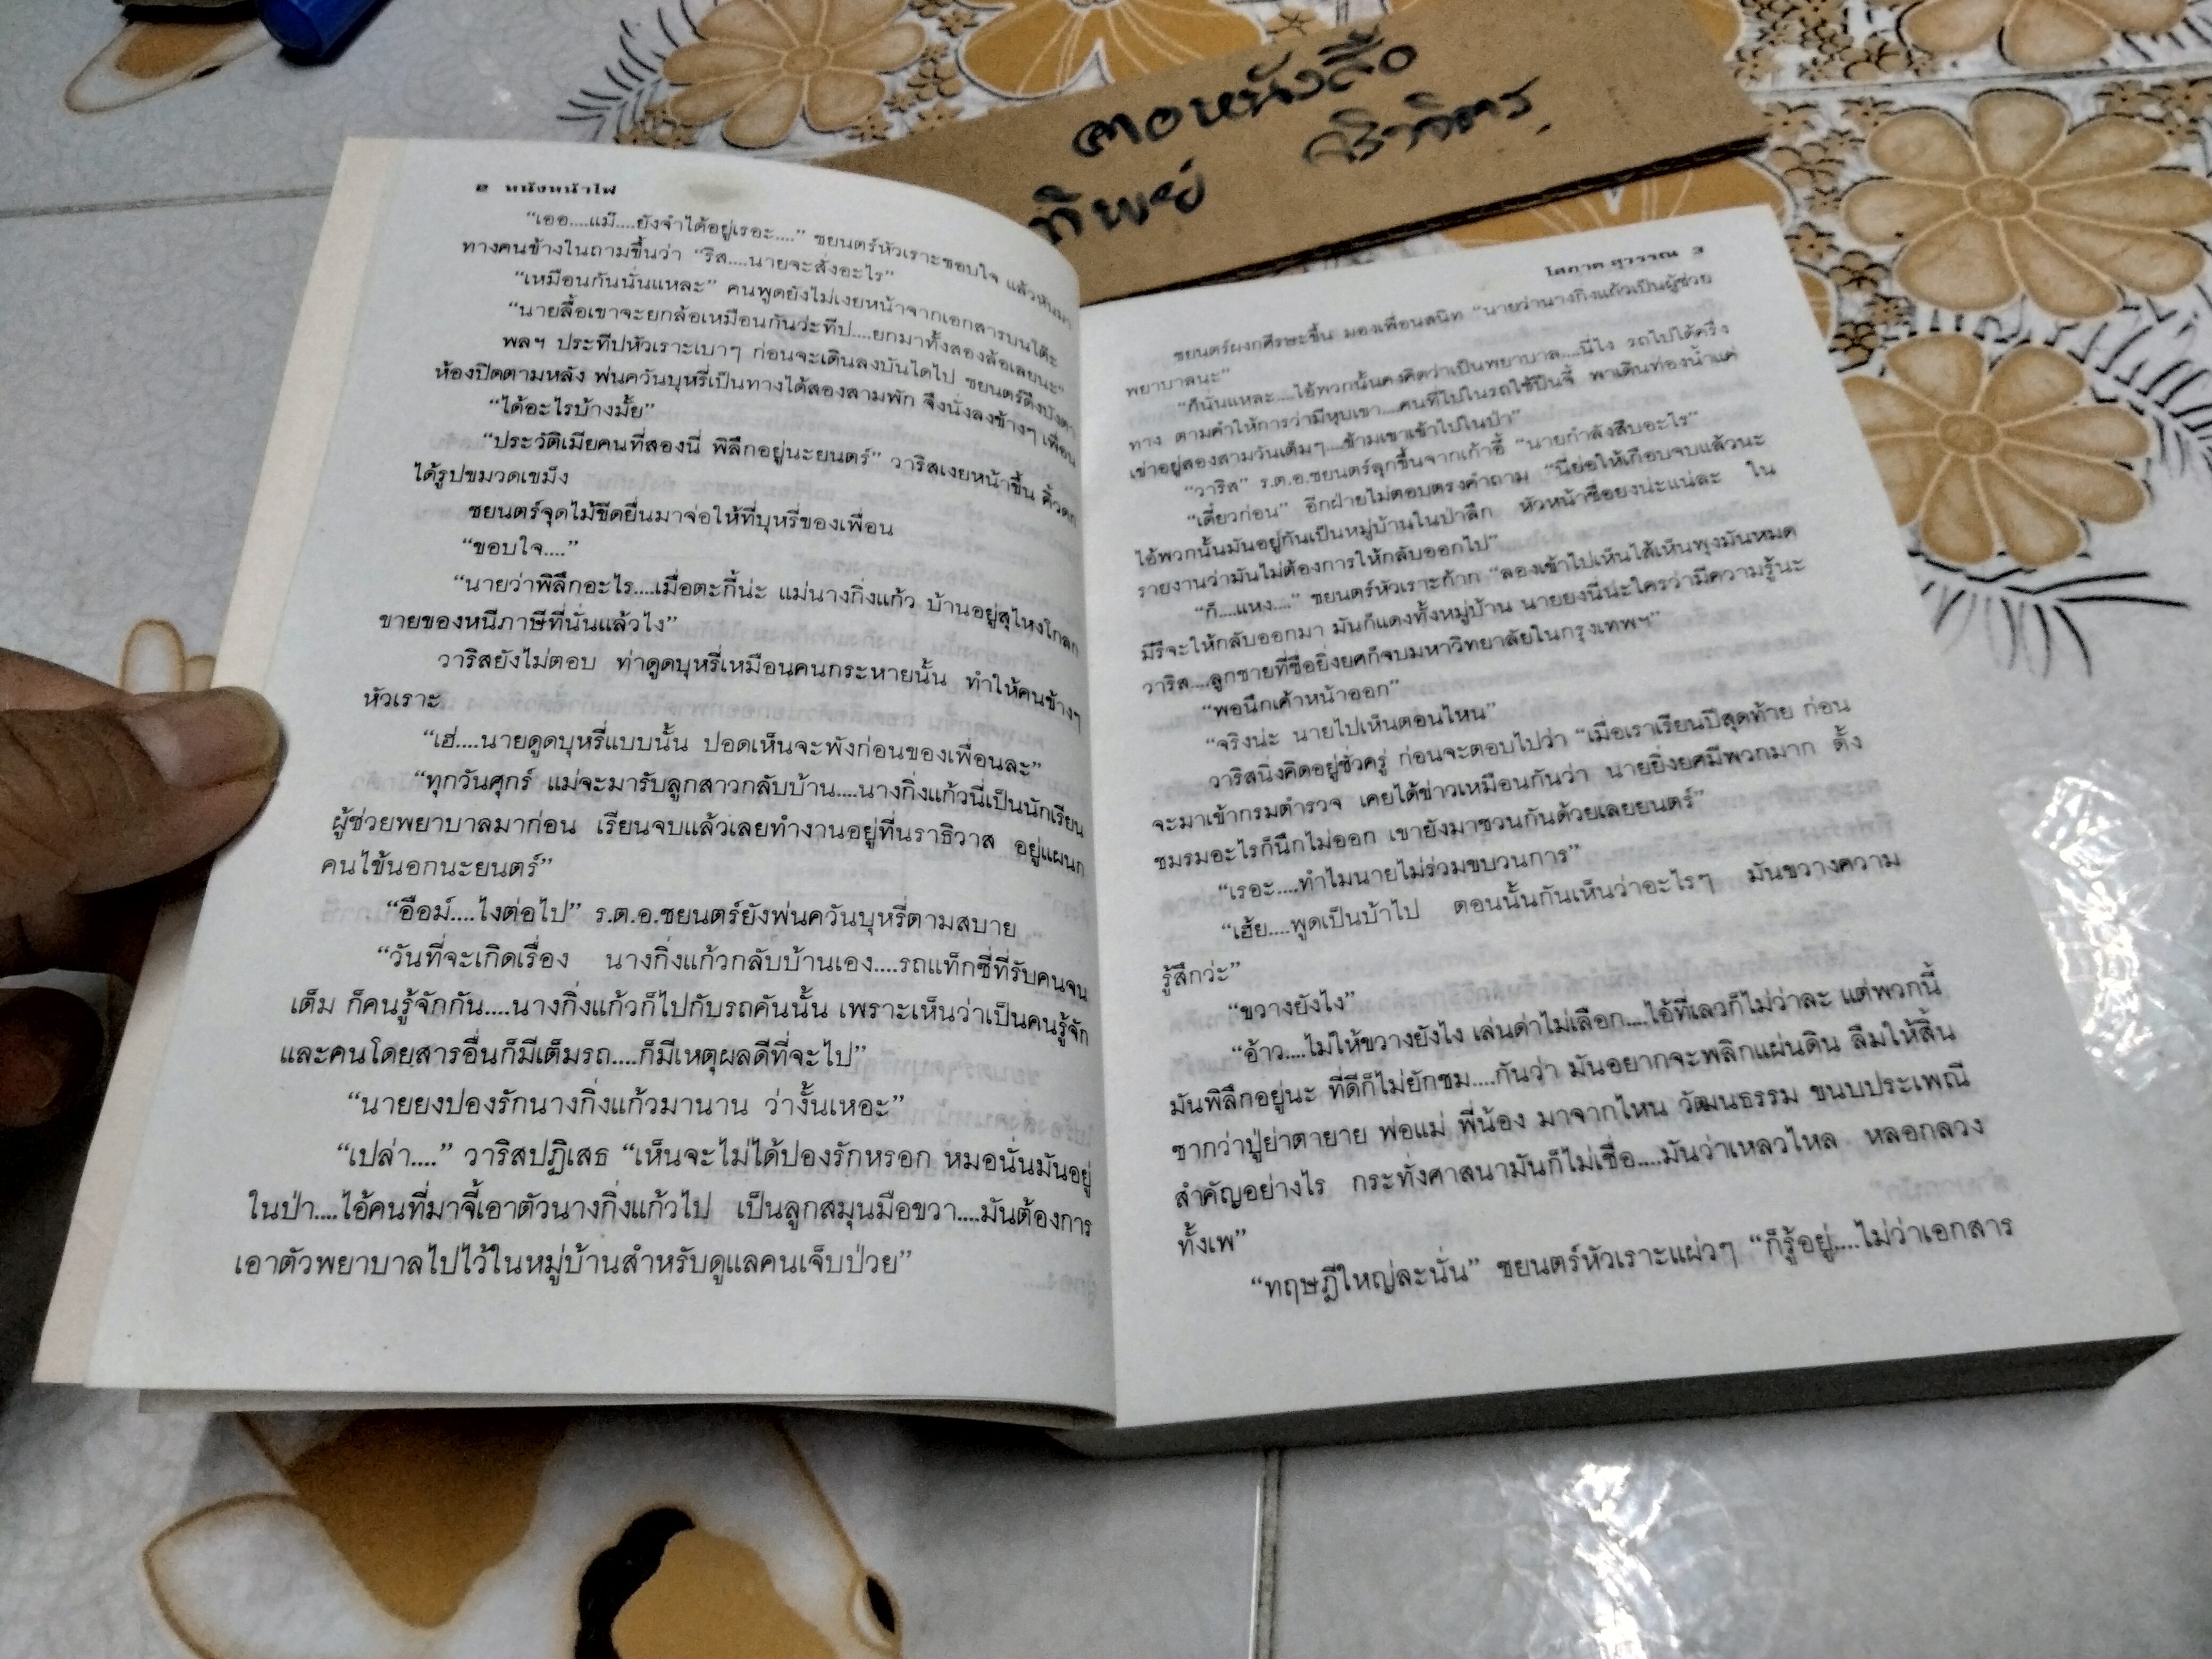 คอหนังสือ
ทิพย์ ศิริจิตร
๒ หนังหน้าไฟ
“เออ....แม๊....ยังจำได้อยู่เรอะ....” ชยนตร์หัวเราะชอบใจ แล้วหันมา
ทางคนข้างในถามขึ้นว่า “ริส....นายจะสั่งอะไร”
“เหมือนกันนั่นแหละ” คนพูดยังไม่เงยหน้าจากเอกสารบนโต๊ะ
“นายลื้อเขาจะยกล้อเหมือนกันว่ะทีป....ยกมาทั้งสองล้อเลยนะ”
พลฯ ประทีปหัวเราะเบาๆ ก่อนจะเดินลงบันไดไป ชยนตร์ดึงบังตา
ห้องปิดตามหลัง พ่นควันบุหรี่เป็นทางได้สองสามพัก จึงนั่งลงข้างๆ เพื่อน
“ได้อะไรบ้างมั้ย”
“ประวัติเมียคนที่สองนี่ พิลึกอยู่นะยนตร์” วาริสเงยหน้าขึ้น คิ้วดก
ได้รูปขมวดเขม็ง
ชยนตร์จุดไม้ขีดยื่นมาจ่อให้ที่บุหรี่ของเพื่อน
“ขอบใจ....”
“นายว่าพิลึกอะไร....เมื่อตะกี้น่ะ แม่นางกิ่งแก้ว บ้านอยู่สุไหงโกลก
ขายของหนีภาษีที่นั่นแล้วไง”
วาริสยังไม่ตอบ ท่าดูดบุหรี่เหมือนคนกระหายนั้น ทำให้คนข้างๆ
หัวเราะ
“เฮ่....นายดูดบุหรี่แบบนั้น ปอดเห็นจะพังก่อนของเพื่อนละ”
“ทุกวันศุกร์ แม่จะมารับลูกสาวกลับบ้าน....นางกิ่งแก้วนี่เป็นนักเรียน
ผู้ช่วยพยาบาลมาก่อน เรียนจบแล้วเลยทำงานอยู่ที่นราธิวาส อยู่แผนก
คนไข้นอกนะยนตร์”
“อือม์....ไงต่อไป” ร.ต.อ.ชยนตร์ยังพ่นควันบุหรี่ตามสบาย
“วันที่จะเกิดเรื่อง นางกิ่งแก้วกลับบ้านเอง....รถแท็กซี่ที่รับคนจน
เต็ม ก็คนรู้จักกัน....นางกิ่งแก้วก็ไปกับรถคันนั้น เพราะเห็นว่าเป็นคนรู้จัก
และคนโดยสารอื่นก็มีเต็มรถ....ก็มีเหตุผลดีที่จะไป”
“นายยงปองรักนางกิ่งแก้วมานาน ว่างั้นเหอะ”
“เปล่า....” วาริสปฏิเสธ “เห็นจะไม่ได้ปองรักหรอก หมอนั่นมันอยู่
ในป่า....ไอ้คนที่มาจี้เอาตัวนางกิ่งแก้วไป เป็นลูกสมุนมือขวา....มันต้องการ
เอาตัวพยาบาลไปไว้ในหมู่บ้านสำหรับดูแลคนเจ็บป่วย”
โสภาค สุวรรณ ๓
ชยนตร์ผงกศีรษะขึ้น มองเพื่อนสนิท “นายว่านางกิ่งแก้วเป็นผู้ช่วย
พยาบาลนะ”
“ก็นั่นแหละ....ไอ้พวกนั้นคงคิดว่าเป็นพยาบาล....นี่ไง รถไปได้ครึ่ง
ทาง ตามคำให้การว่ามีหุบเขา....คนที่ไปในรถใช้ปืนจี้ พาเดินท่องน้ำแค่
เข่าอยู่สองสามวันเต็มๆ....ข้ามเขาเข้าไปในป่า”
“วาริส” ร.ต.อ.ชยนตร์ลุกขึ้นจากเก้าอี้ “นายกำลังสืบอะไร”
“เดี๋ยวก่อน” อีกฝ่ายไม่ตอบตรงคำถาม “นี่ย่อให้เกือบจบแล้วนะ
ไอ้พวกนั้นมันอยู่กันเป็นหมู่บ้านในป่าลึก หัวหน้าชื่อยงน่ะแน่ละ ใน
รายงานว่ามันไม่ต้องการให้กลับออกไป”
“ก็....แหง....” ชยนตร์หัวเราะก้าก “ลองเข้าไปเห็นไส้เห็นพุงมันหมด
มีรึจะให้กลับออกมา มันก็แดงทั้งหมู่บ้าน นายยงนี่น่ะใครว่ามีความรู้นะ
วาริส....ลูกชายที่ชื่อยิ่งยศก็จบมหาวิทยาลัยในกรุงเทพฯ”
“พอนึกเค้าหน้าออก”
“จริงน่ะ นายไปเห็นตอนไหน”
วาริสนิ่งคิดอยู่ชั่วครู่ ก่อนจะตอบไปว่า “เมื่อเราเรียนปีสุดท้าย ก่อน
จะมาเข้ากรมตำรวจ เคยได้ข่าวเหมือนกันว่า นายยิ่งยศมีพวกมาก ตั้ง
ชมรมอะไรก็นึกไม่ออก เขายังมาชวนกันด้วยเลยยนตร์”
“เรอะ....ทำไมนายไม่ร่วมขบวนการ”
“เฮ้ย....พูดเป็นบ้าไป ตอนนั้นกันเห็นว่าอะไรๆ มันขวางความ
รู้สึกว่ะ”
“ขวางยังไง”
“อ้าว....ไม่ให้ขวางยังไง เล่นด่าไม่เลือก....ไอ้ที่เลวก็ไม่ว่าละ แต่พวกนี้
มันพิลึกอยู่นะ ที่ดีก็ไม่ยักชม....กันว่า มันอยากจะพลิกแผ่นดิน ลืมให้สิ้น
ซากว่าปู่ย่าตายาย พ่อแม่ พี่น้อง มาจากไหน วัฒนธรรม ขนบประเพณี
สำคัญอย่างไร กระทั่งศาสนามันก็ไม่เชื่อ....มันว่าเหลวไหล หลอกลวง
ทั้งเพ”
“ทฤษฎีใหญ่ละนั่น” ชยนตร์หัวเราะแผ่วๆ “ก็รู้อยู่....ไม่ว่าเอกสาร